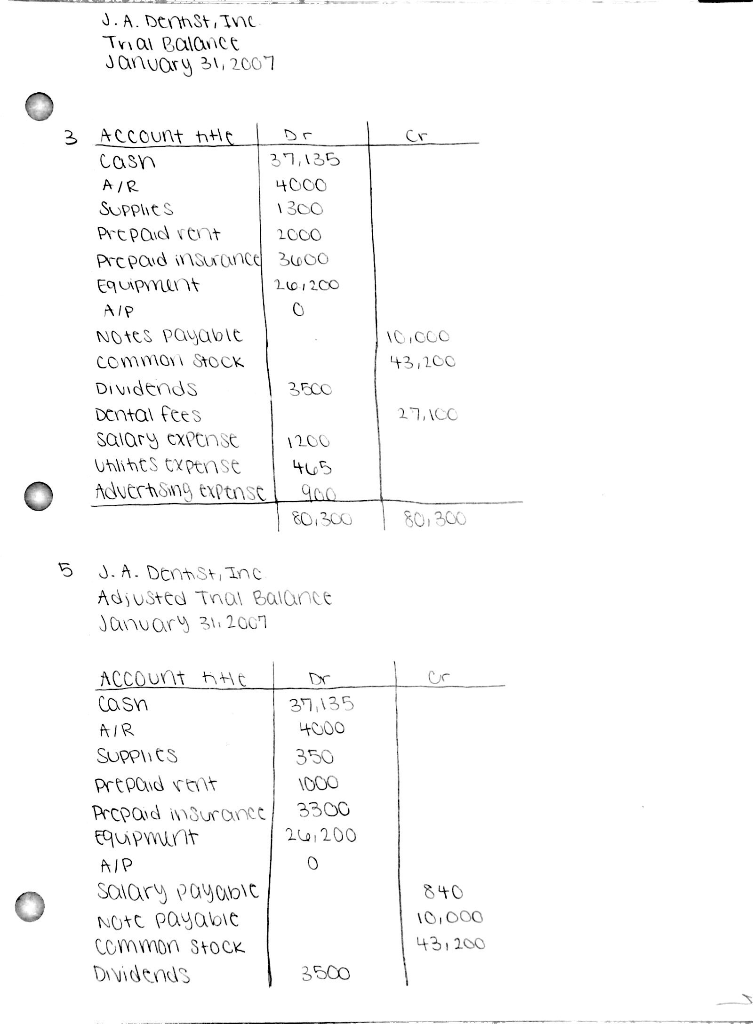 J. A. Dentist, Inc.
Trial Balance
January 31, 2007
3 Account title Dr Cr
Cash 37,135
A/R 4000
Supplies 1300
Prepaid rent 2000
Prepaid insurance 3600
Equipment 26,200
A/P 0
Notes payable 10,000
Common stock 43,200
Dividends 3500
Dental fees 27,100
Salary expense 1200
Utilities expense 465
Advertising expense 900
80,300 80,300
5 J. A. Dentist, Inc
Adjusted Trial Balance
January 31, 2007
Account title Dr Cr
Cash 37,135
A/R 4000
Supplies 350
Prepaid rent 1000
Prepaid insurance 3300
Equipment 26,200
A/P 0
Salary payable 840
Note payable 10,000
Common stock 43,200
Dividends 3500